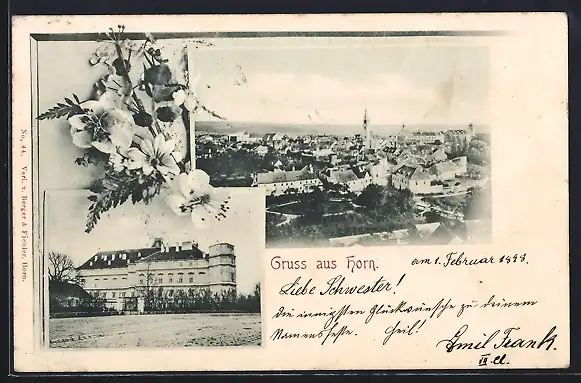 No. 44. Verl. v. Berger & Fiehler, Horn.
Gruss aus Horn.
am 1. Februar 1898.
Liebe Schwester!
die innigsten Glückwünsche zu deinem
Namensfeste. Heil!
Emil Frank.